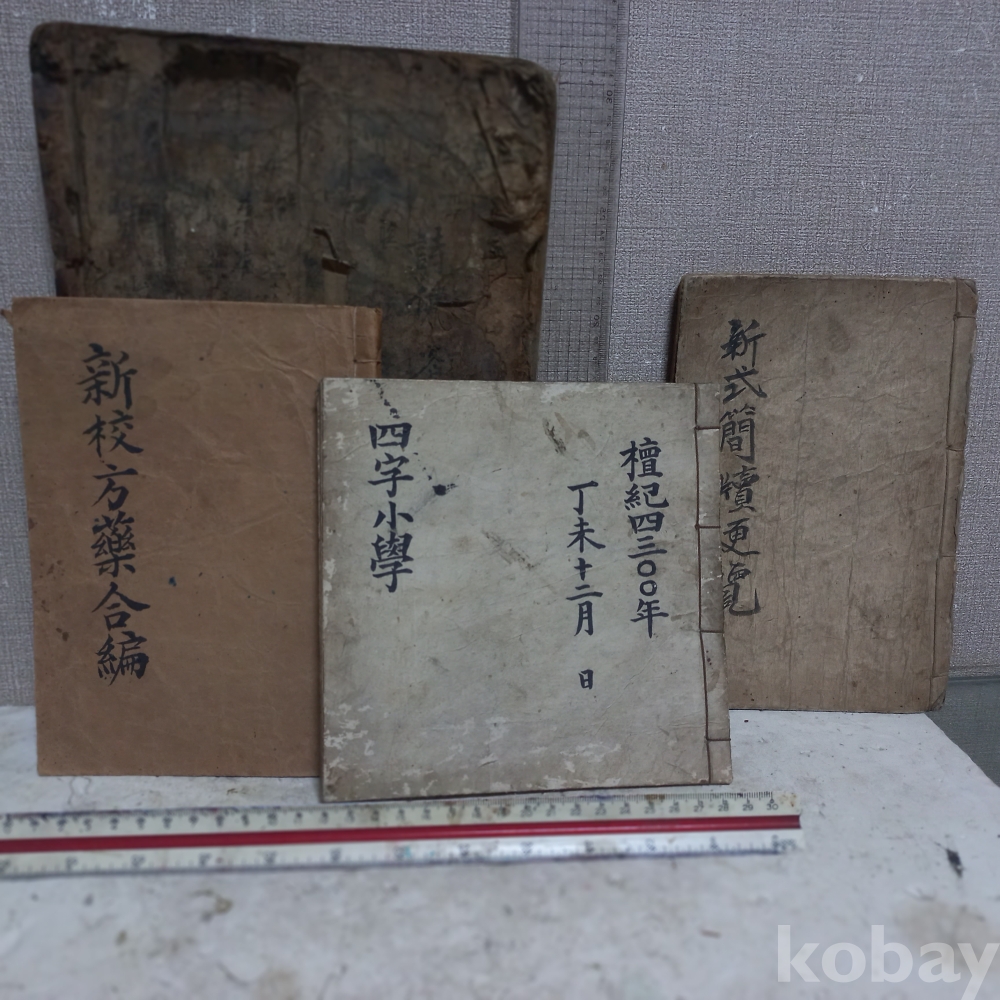 新校方藥合編
檀紀四三〇〇年
丁未十二月 日
四字小學
新式簡牘更覽
kobay